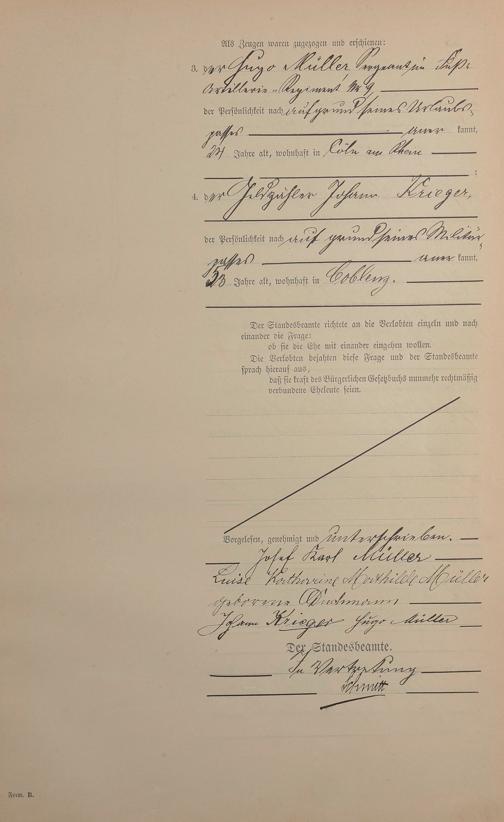 Als Zeugen waren zugezogen und erschienen:
3. der Hugo Müller, Sergeant im Fuß-
Artillerie-Regiment Nr 9,
der Persönlichkeit nach auf grund seines Urlaubs-
passes aner kannt,
24 Jahre alt, wohnhaft in Cöln am Rhein
;
4. der Geldzähler Johann Krieger,
der Persönlichkeit nach auf grund seines Militär-
passes aner kannt,
Jahre alt, wohnhaft in Coblenz.
Der Standesbeamte richtete an die Verlobten einzeln und nach
einander die Frage:
ob sie die Ehe mit einander eingehen wollen.
Die Verlobten bejahten diese Frage und der Standesbeamte
sprach hierauf aus,
daß sie kraft des Bürgerlichen Gesetzbuchs nunmehr rechtmäßig
verbundene Eheleute seien.
Vorgelesen, genehmigt und unterschrieben.
Josef Karl Müller
Luise Katharina Mathilde Müller
geborene
Johann Krieger Hugo Müller
Der Standesbeamte.
In Vertretung
Schmitt
Form. B.